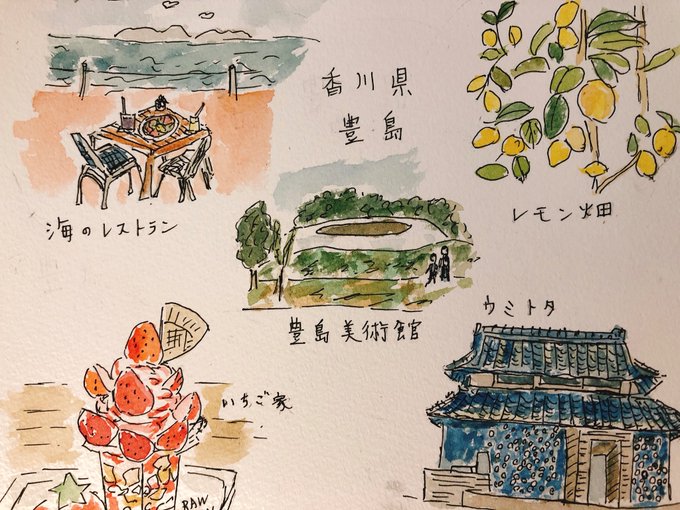 香川県
豊島
海のレストラン
レモン畑
豊島美術館
ウミトタ
いちご家
RAW